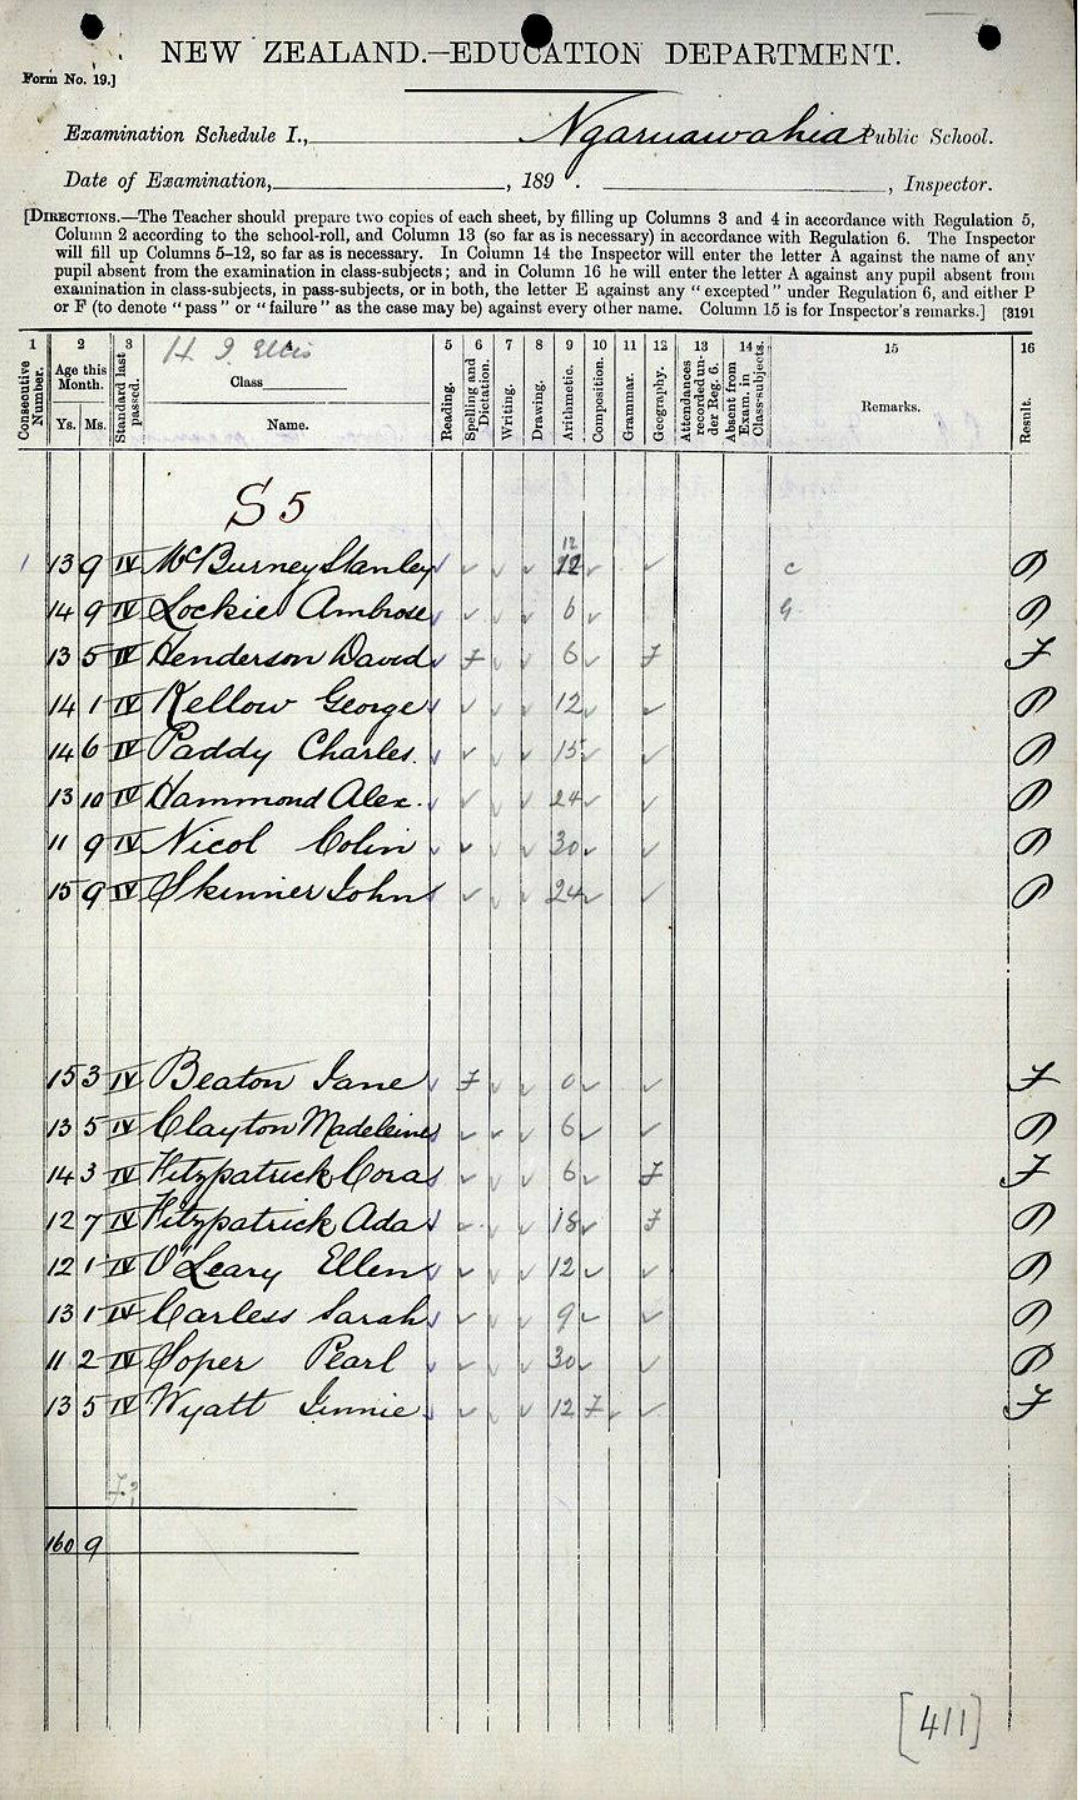 NEW ZEALAND.—EDUCATION DEPARTMENT.
Form No. 19.]
Examination Schedule I., Ngaruawahia Public School.
Date of Examination, , 189 . , Inspector.
[DIRECTIONS.—The Teacher should prepare two copies of each sheet, by filling up Columns 3 and 4 in accordance with Regulation 5,
Column 2 according to the school-roll, and Column 13 (so far as is necessary) in accordance with Regulation 6. The Inspector
will fill up Columns 5–12, so far as is necessary. In Column 14 the Inspector will enter the letter A against the name of any
pupil absent from the examination in class-subjects; and in Column 16 he will enter the letter A against any pupil absent from
examination in class-subjects, in pass-subjects, or in both, the letter E against any "excepted" under Regulation 6, and either P
or F (to denote "pass" or "failure" as the case may be) against every other name. Column 15 is for Inspector's remarks.] [3191
1 2 3 4 5 6 7 8 9 10 11 12 13 14 15 16
Consecutive Number. Age this Month. Ys. Ms. Standard last passed. Class Name. Reading. Spelling and Dictation. Writing. Drawing. Arithmetic. Composition. Grammar. Geography. Attendances recorded under Reg. 6. Absent from Exam. in Class-subjects. Remarks. Result.
Ellis
S 5
12
1 13 9 IV McBurney Stanley ✓ ✓ ✓ ✓ 12 ✓ ✓ c P
14 9 IV Lockie Ambrose ✓ ✓ ✓ ✓ 6 ✓ G. P
13 5 IV Henderson David ✓ F ✓ ✓ 6 ✓ F F
14 1 IV Kellow George ✓ ✓ ✓ ✓ 12 ✓ ✓ P
14 6 IV Paddy Charles. ✓ ✓ ✓ ✓ 15 ✓ ✓ P
13 10 IV Hammond Alex. ✓ ✓ ✓ ✓ 24 ✓ ✓ P
11 9 IV Nicol Colin ✓ ✓ ✓ ✓ 30 ✓ ✓ P
15 9 IV Skinner John ✓ ✓ ✓ ✓ 24 ✓ ✓ P
15 3 IV Beaton Jane ✓ F ✓ ✓ 0 ✓ ✓ F
13 5 IV Clayton Madeleine ✓ ✓ ✓ ✓ 6 ✓ ✓ P
14 3 IV Fitzpatrick Cora ✓ ✓ ✓ ✓ 6 ✓ F F
12 7 IV Fitzpatrick Ada ✓ ✓ ✓ ✓ 18 ✓ F P
12 1 IV O'Leary Ellen ✓ ✓ ✓ ✓ 12 ✓ ✓ P
13 1 IV Carless Sarah ✓ ✓ ✓ ✓ 9 ✓ ✓ P
11 2 IV Soper Pearl ✓ ✓ ✓ ✓ 30 ✓ ✓ P
13 5 IV Wyatt Jinnie ✓ ✓ ✓ ✓ 12 F ✓ F
160 9
[411]